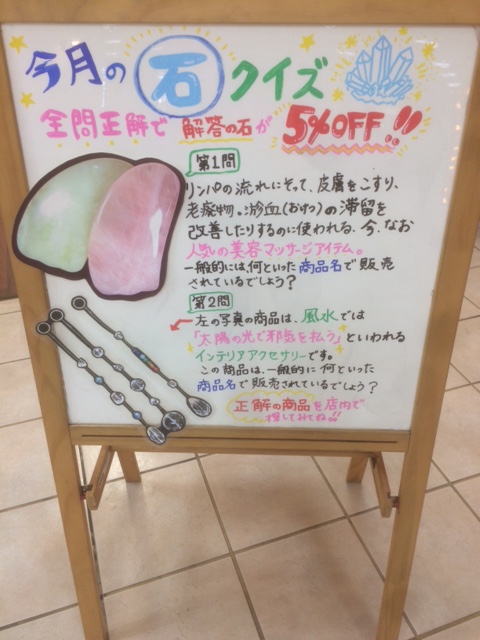 今月の石クイズ
全問正解で 解答の石が 5%OFF!!
第1問
リンパの流れにそって、皮膚をこすり、
老廃物。淤血(おけつ)の滞留を
改善したりするのに使われる、今、なお
人気の美容マッサージアイテム。
一般的には、何といった商品名で販売
されているでしょう?
第2問
左の写真の商品は、風水では
「太陽の光で邪気を払う」といわれる
インテリアアクセサリーです。
この商品は、一般的に何といった
商品名で販売されているでしょう?
正解の商品を店内で
探してみてね!!